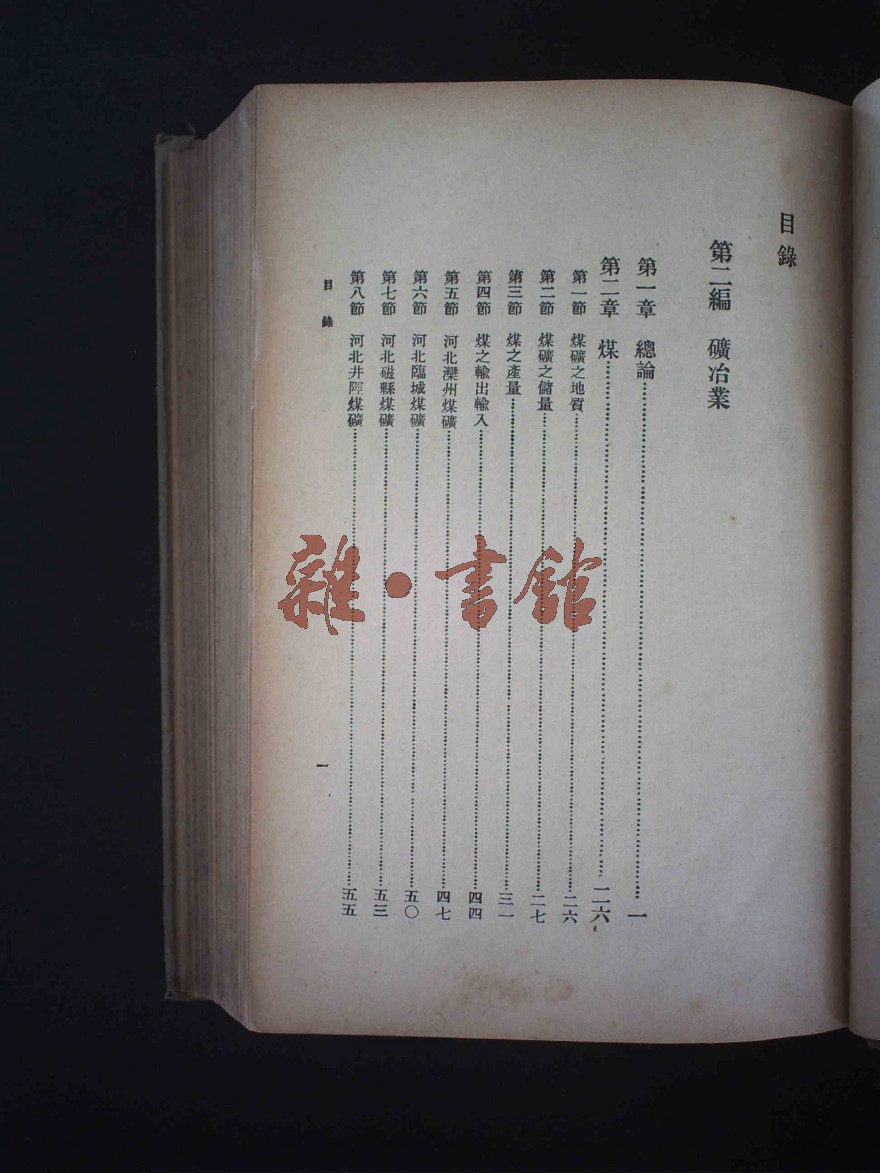 目錄
第二編　礦冶業
第一章　總論……一
第二章　煤……二六
第一節　煤礦之地質……二六
第二節　煤礦之儲量……二七
第三節　煤之產量……三一
第四節　煤之輸出輸入……四四
第五節　河北灤州煤礦……四七
第六節　河北臨城煤礦……五〇
第七節　河北磁縣煤礦……五三
第八節　河北井陘煤礦……五五
目錄　一
雜·書館